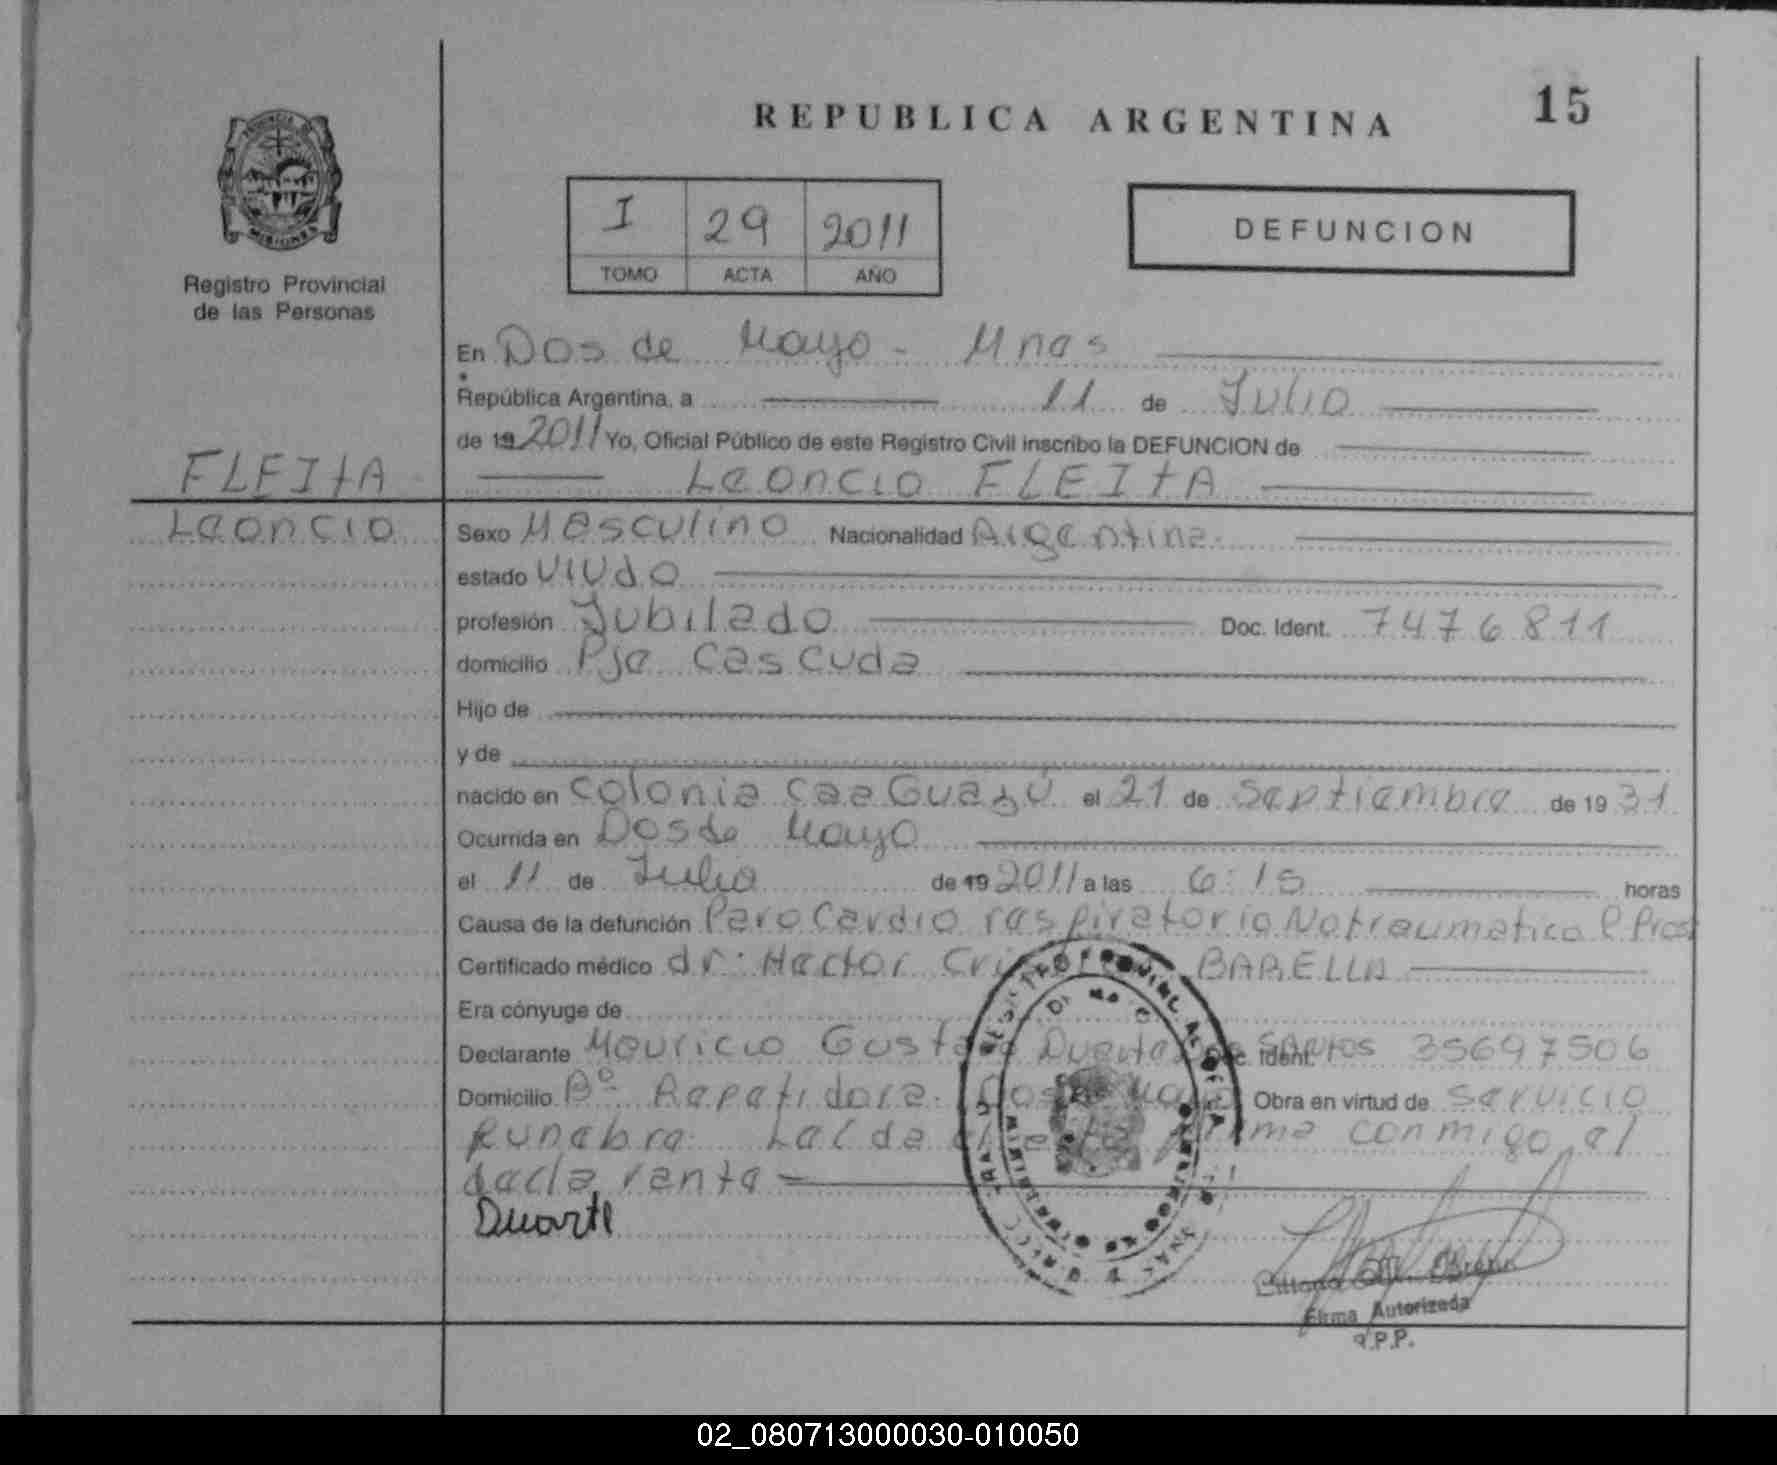 REPUBLICA ARGENTINA
15
PROVINCIA DE
MISIONES
Registro Provincial
de las Personas
I 29 2011
TOMO ACTA AÑO
DEFUNCION
En Dos de Mayo - Mnes
República Argentina, a 11 de Julio
de 19 2011 Yo, Oficial Público de este Registro Civil inscribo la DEFUNCION de
FLEITA
Leoncio FLEITA
Leoncio
Sexo Masculino Nacionalidad Argentina
estado viudo
profesión Jubilado Doc. Ident. 7476811
domicilio Pje Cascuda
Hijo de
y de
nacido en Colonia CaaGuazú el 21 de Septiembre de 19 31
Ocurrida en Dos de Mayo
el 11 de Julio de 19 2011 a las 6:15 horas
Causa de la defunción Paro Cardio respiratorio No traumatico
Certificado médico dr: Hector BARELLA
Era cónyuge de
Declarante Mauricio Gustavo Duarte Dos Santos Doc. Ident. 35697506
Domicilio Bº Repetidora Dos de Mayo Obra en virtud de servicio
funebre. Leída el acta firma conmigo el
declarante
Duarte
Firma Autorizada
R.P.P.
02_080713000030-010050